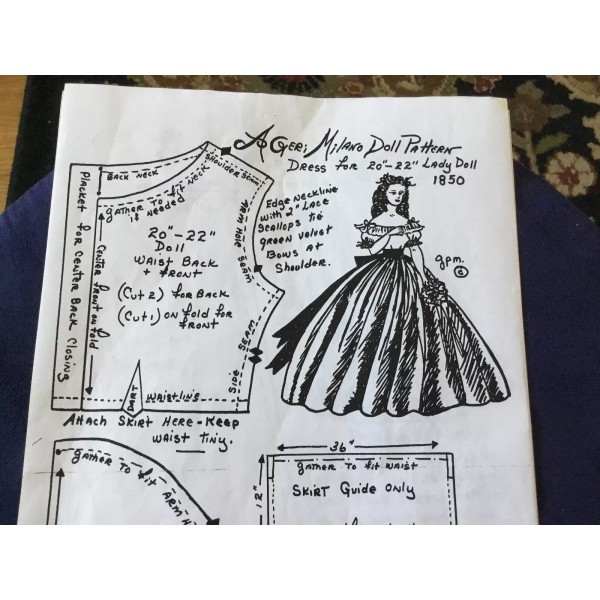 A Geri Milano Doll Pattern
Dress for 20"-22" Lady Doll
1850
Back Neck
Shoulder Seam
Gather to fit Neck
if needed
Placket for Center Back Closing
Center Front on fold
Arm Hole Seam
20"-22"
Doll
Waist Back
+ Front
(Cut 2) for Back
(Cut 1) on fold for
Front
Side Seam
Dart
Waistline
Edge Neckline
with 2" Lace
Scallops tie
green velvet
Bows at
Shoulder.
g.p.m.
©
Attach Skirt Here - Keep
Waist tiny.
Gather To fit Arm
36"
Gather to fit Waist
12"
Skirt Guide Only